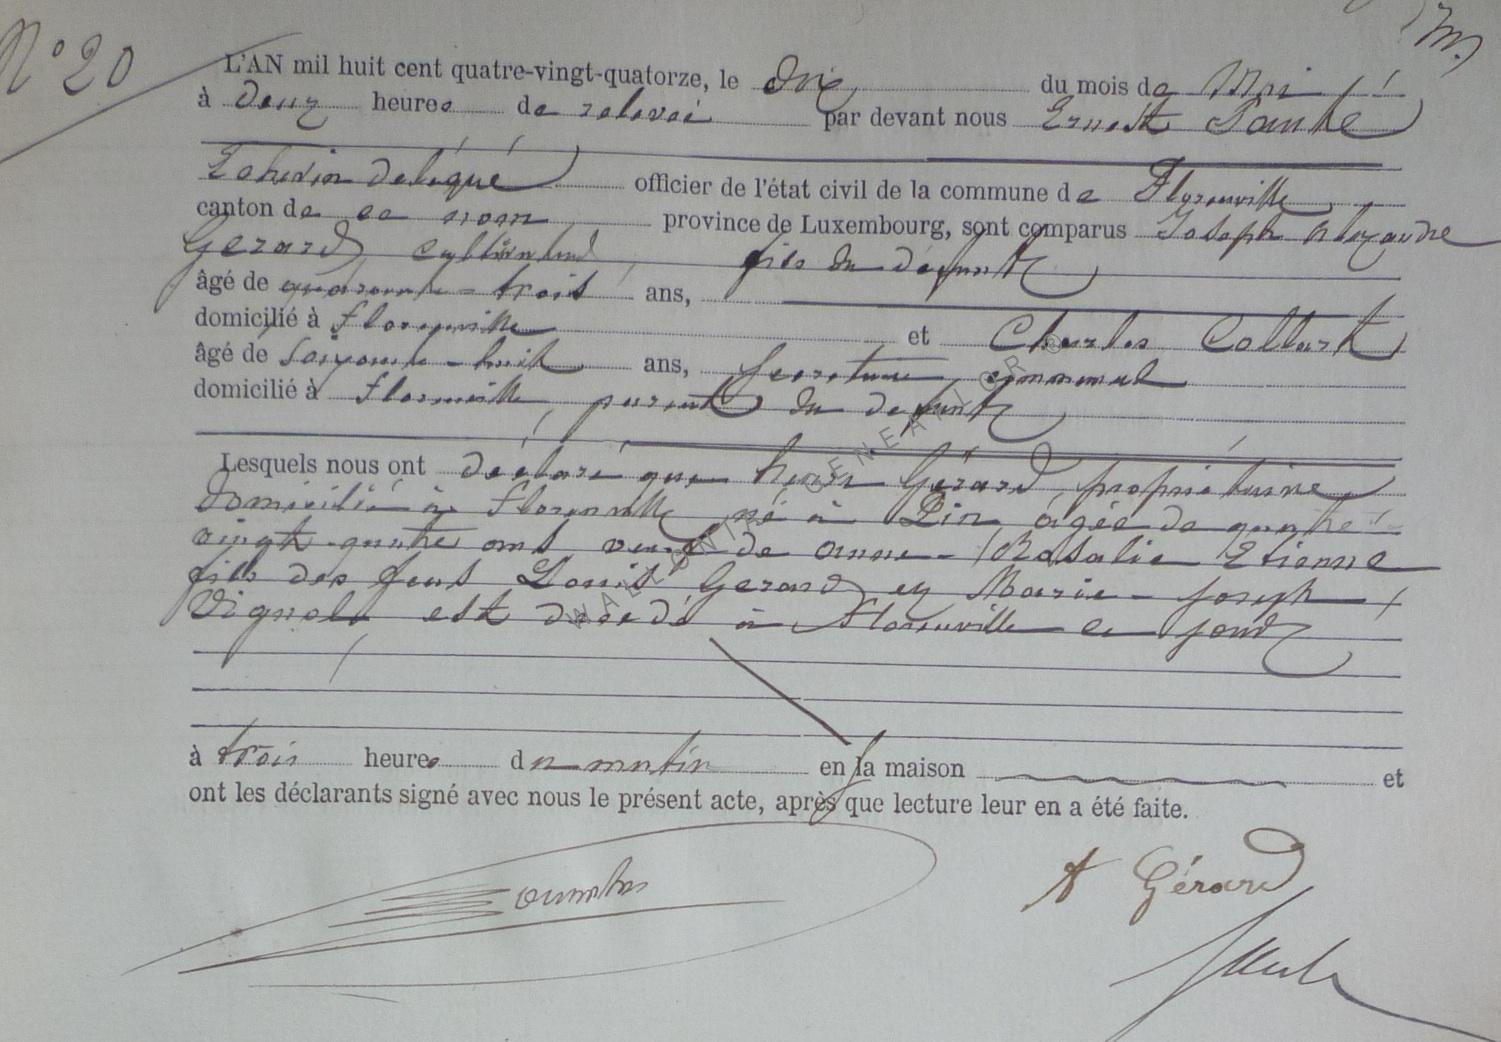 N° 20
L'AN mil huit cent quatre-vingt-quatorze, le dix du mois de Mai
à deux heures de relevée par devant nous Ernest
Echevin délégué officier de l'état civil de la commune de Florenville
canton de ce nom province de Luxembourg, sont comparus Joseph Alexandre
Gerard cultivateur, fils du défunt
âgé de quarante-trois ans,
domicilié à Florenville et Charles Collart
âgé de soixante-huit ans, Secretaire communal
domicilié à Florenville, parent du defunt
Lesquels nous ont déclaré que Henri Gérard propriétaire
domicilié à Florenville né à Pin âgée de quatre
vingt-quatre ans veuf de Anne-Rosalie Etienne
fils des feus Louis Gerard et Marie-Joseph
est décédé à Florenville ce jour
à trois heures du matin en sa maison et
ont les déclarants signé avec nous le présent acte, après que lecture leur en a été faite.
A Gérard